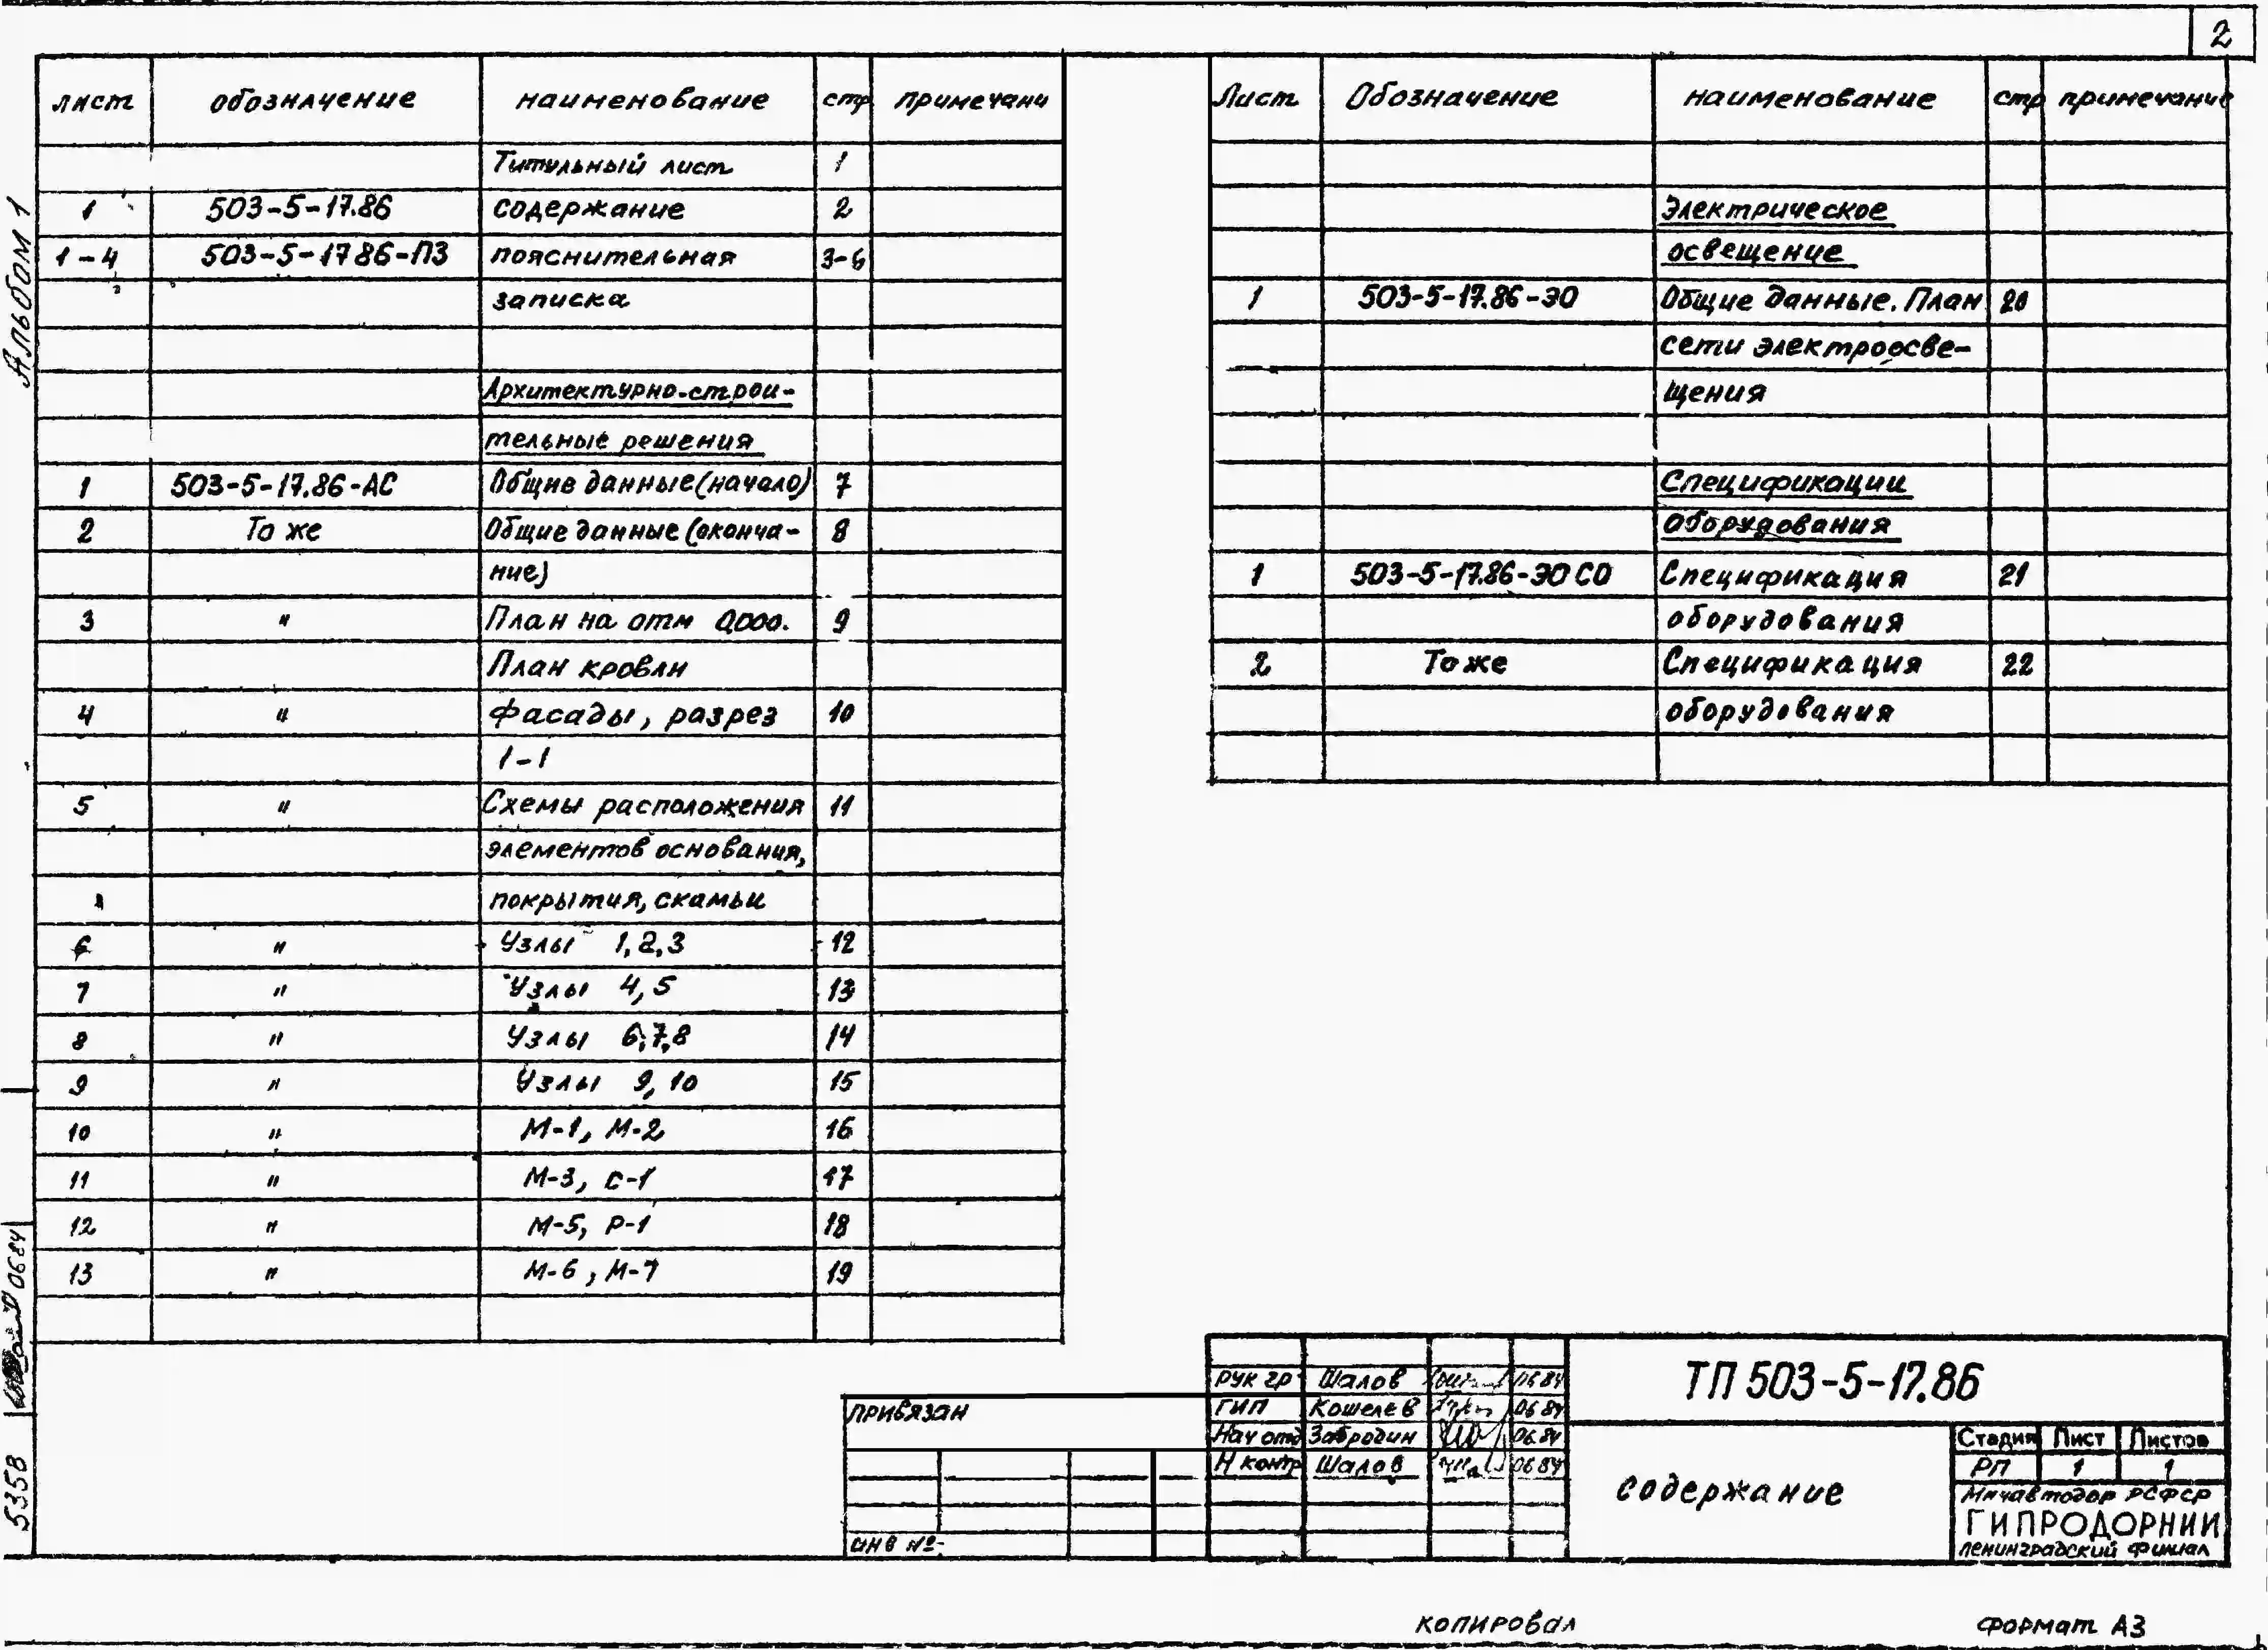 2
лист обозначение наименование стр примечани
Титульный лист 1
1 503-5-17.86 содержание 2
1-4 503-5-1786-ПЗ пояснительная 3-6
записка
Архитектурно-строи-
тельные решения
1 503-5-17.86-АС Общие данные(начало) 7
2 То же Общие данные (оконча- 8
ние)
3 " План на отм 0,000. 9
План кровли
4 " Фасады, разрез 10
1-1
5 " Схемы расположения 11
элементов основания,
покрытия, скамьи
6 " Узлы 1,2,3 12
7 " Узлы 4,5 13
8 " Узлы 6,7,8 14
9 " Узлы 9,10 15
10 " М-1, М-2 16
11 " М-3, С-1 17
12 " М-5, Р-1 18
13 " М-6, М-7 19
Лист Обозначение наименование стр примечание
Электрическое
освещение
1 503-5-17.86-ЭО Общие данные. План 20
сети электроосве-
щения
Спецификации
оборудования
1 503-5-17.86-ЭО СО Спецификация 21
оборудования
2 То же Спецификация 22
оборудования
Альбом 1
0684
5358
привязан
инв №
рук гр Шалов 0684
ГИП Кошелев 0684
Нач отд Забродин 06.84
Н контр Шалов 0684
ТП 503-5-17.86
содержание
Стадия Лист Листов
РП 1 1
Минавтодор РСФСР
ГИПРОДОРНИИ
ленинградский филиал
копировал
формат А3